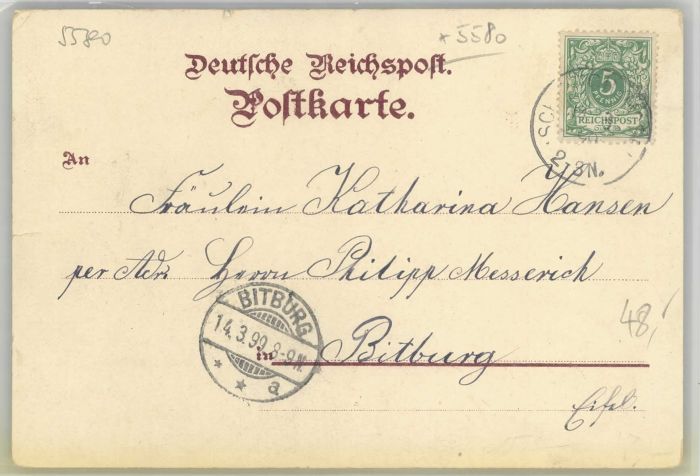 55890
* 5580
Deutsche Reichspost.
Postkarte.
5
REICHSPOST
2-3N.
An
Fräulein Katharina Hansen
per Adr. Herrn Philipp Messerich
BITBURG
14.3.99.8-9N.
* * a
in Bitburg
48,-
Eifel.